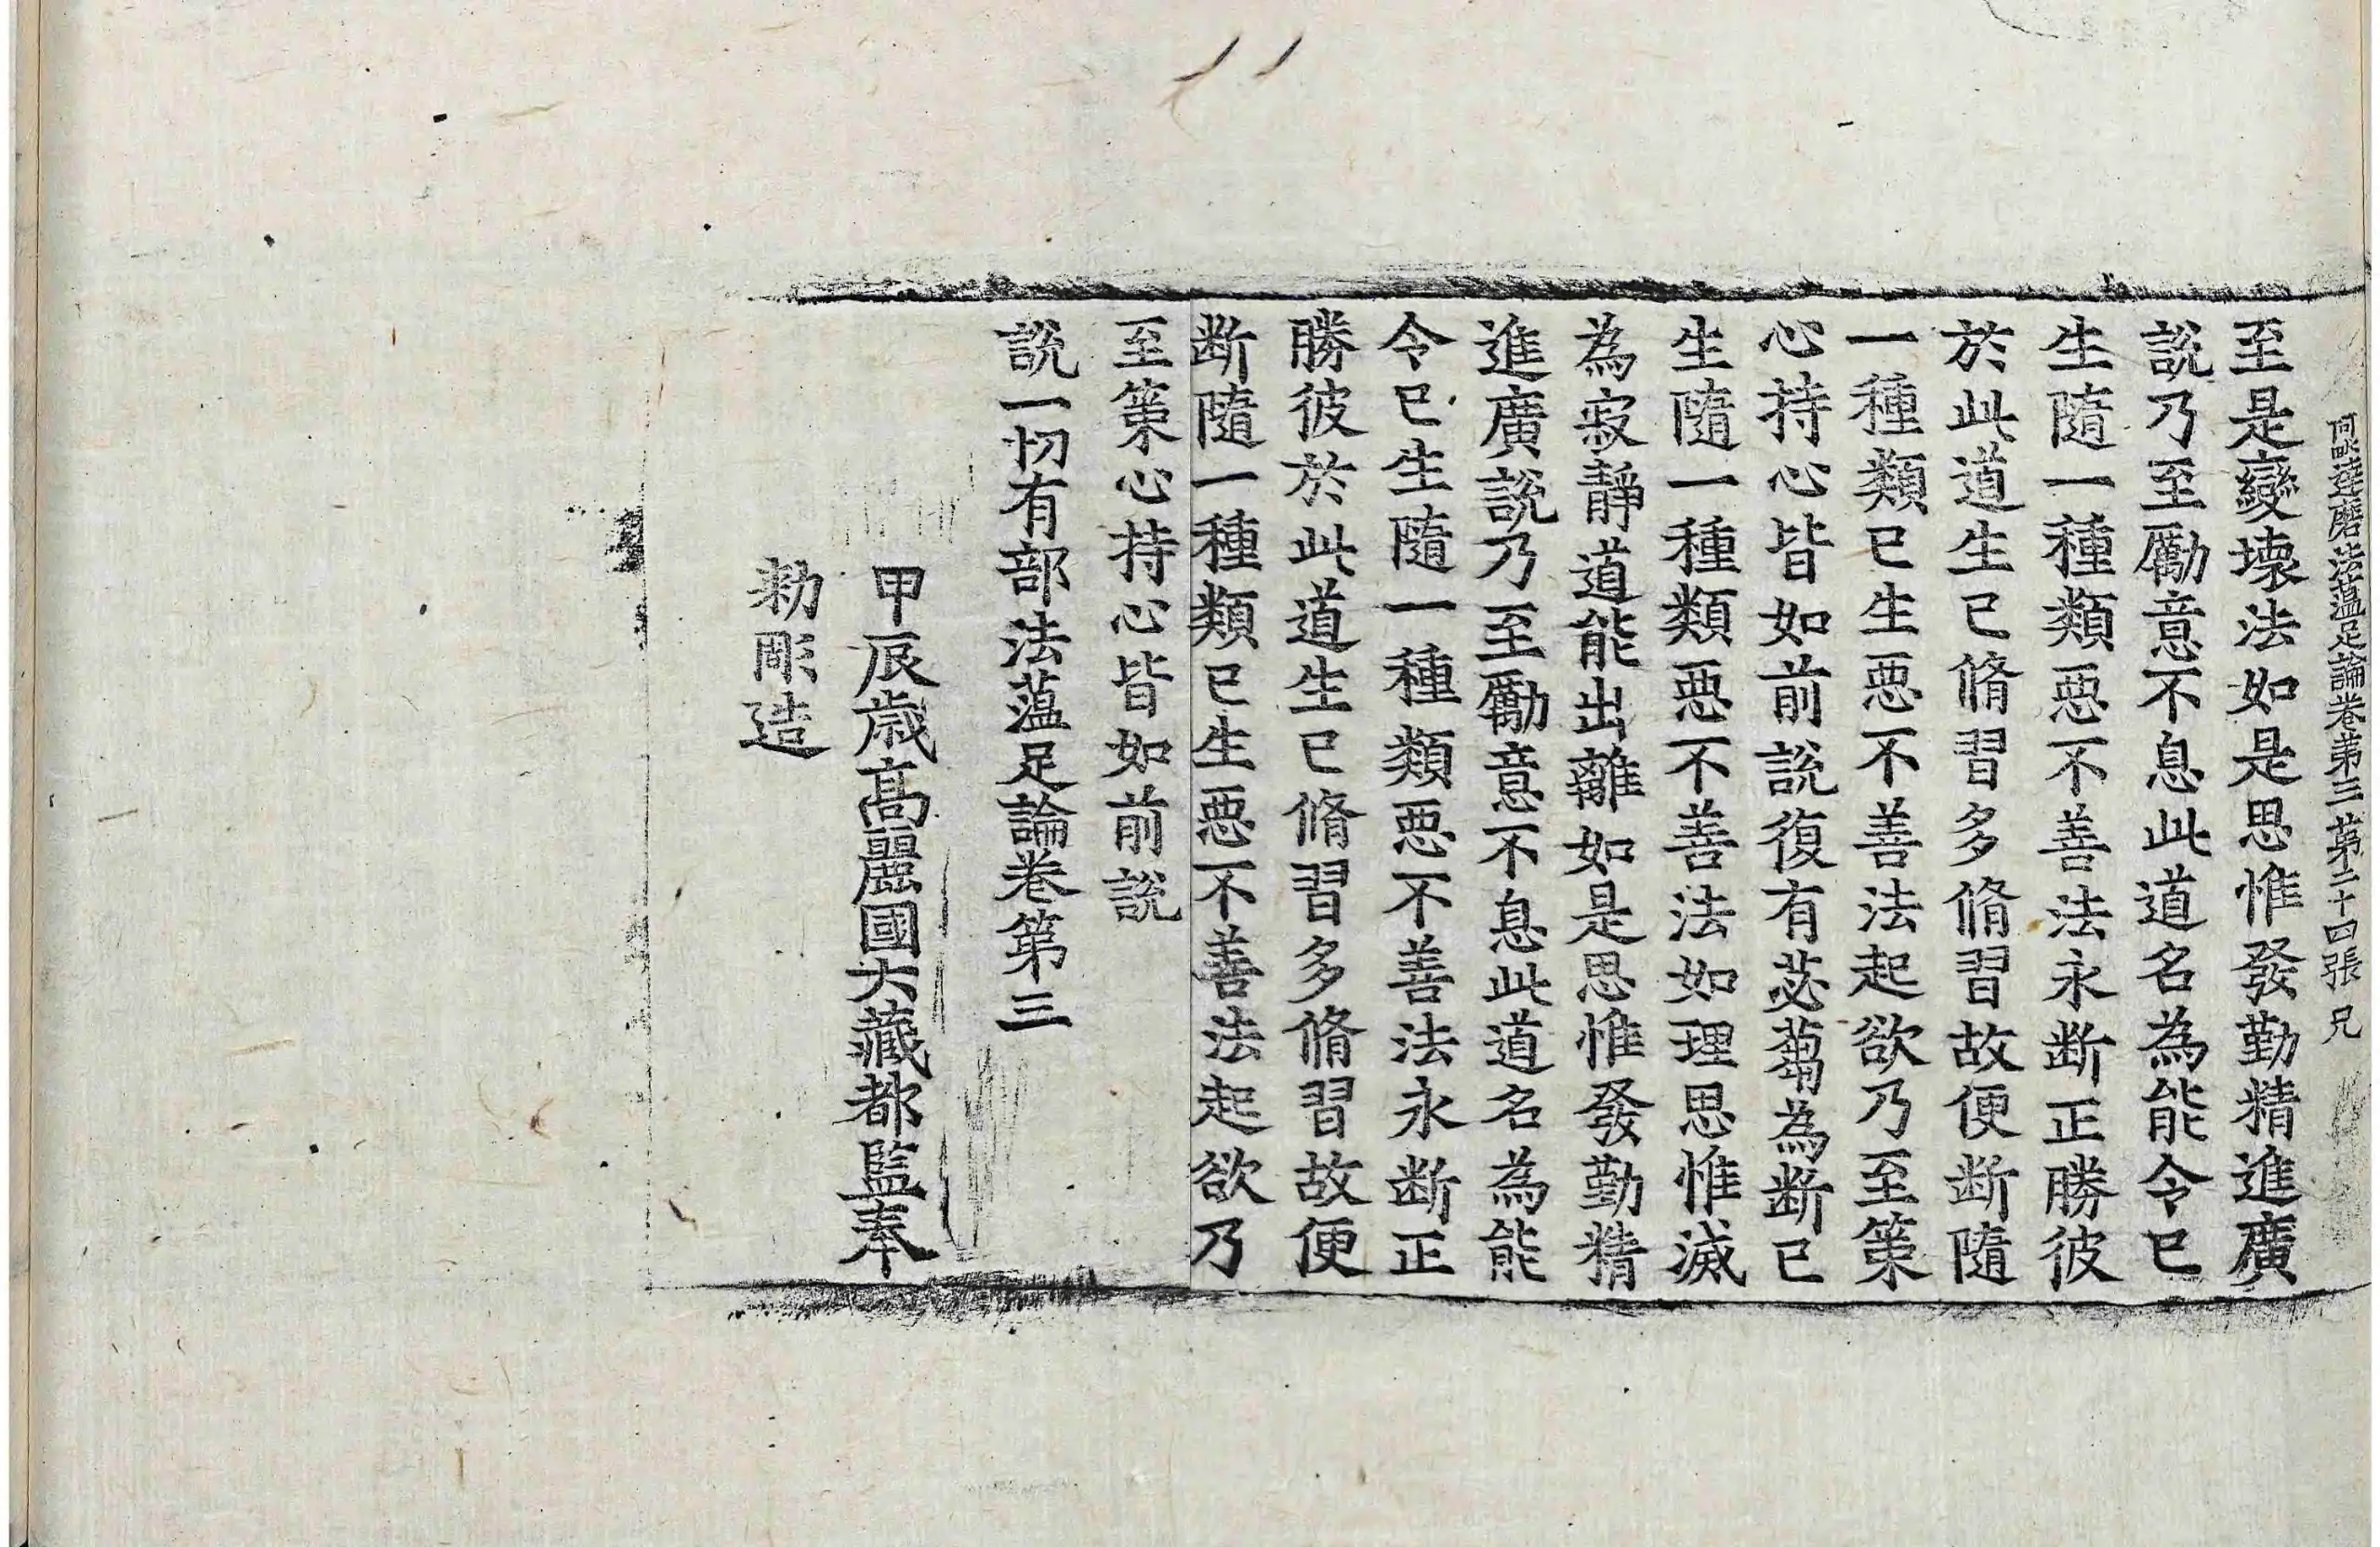 阿毗達磨法蕰足論卷第三 第二十四張 兄
至是變壞法如是思惟發勤精進廣
說乃至勵意不息此道名為能令已
生隨一種類惡不善法永断正勝彼
於此道生已脩習多脩習故便断隨
一種類已生惡不善法起欲乃至策
心持心皆如前說復有苾蒭為断已
生隨一種類惡不善法如理思惟滅
為寂靜道能出離如是思惟發勤精
進廣說乃至勵意不息此道名為能
令已生隨一種類惡不善法永断正
勝彼於此道生已脩習多脩習故便
断隨一種類已生惡不善法起欲乃
至策心持心皆如前說
說一切有部法蕰足論卷第三
甲辰歳高麗國大藏都監奉
勑彫造